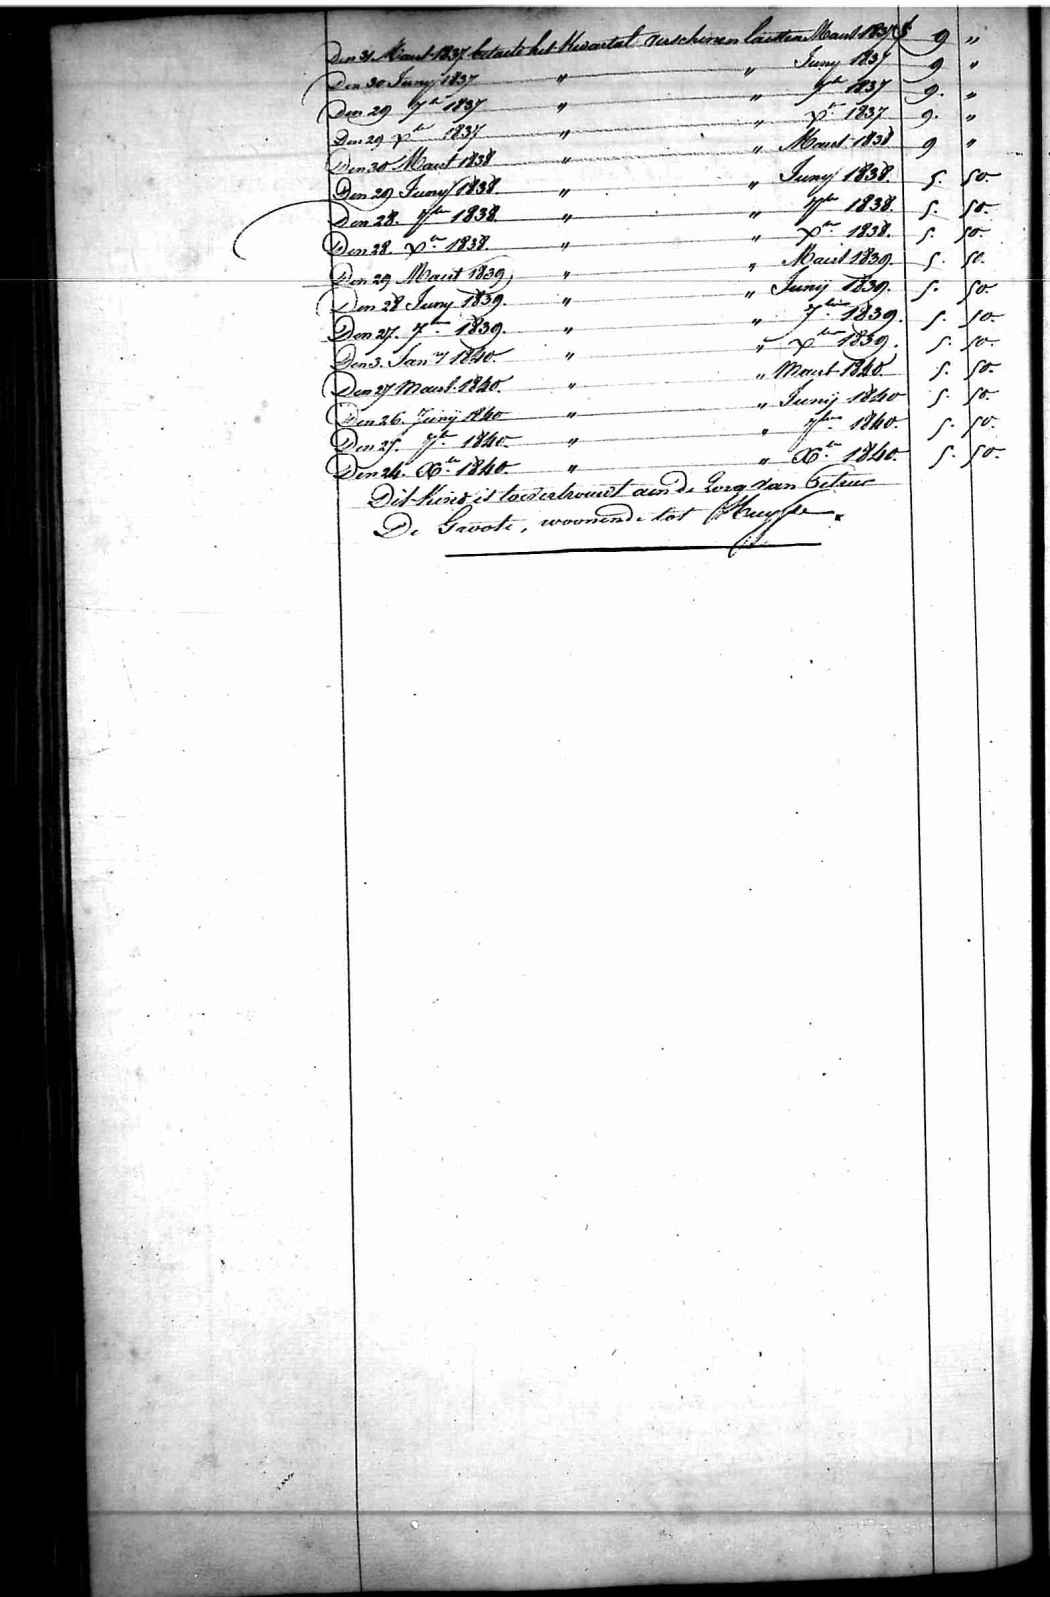 Den 31 Maert 1837 betaelt het Kwartal verschenen laetsten Maert 1837 f 9 "
Den 30 Juny 1837 " " Juny 1837 9 "
Den 29 7br 1837 " " 7br 1837 9. "
Den 29 Xbr 1837 " " Xbr 1837 9. "
Den 30 Maert 1838 " " Maert 1838 9 "
Den 29 Juny 1838. " " Juny 1838. 5. 50.
Den 28. 7bre 1838. " " 7bre 1838. 5. 50.
Den 28. Xbre 1838. " " Xbre 1838. 5. 50.
Den 29 Maert 1839, " " Maert 1839. 5. 50.
Den 28 Juny 1839. " " Junij 1839. 5. 50.
Den 27. 7bre 1839. " " 7bre 1839. 5. 50.
Den 3. Jany 1840. " " Xbre 1839. 5. 50.
Den 27 Maert 1840. " " Maert 1840. 5. 50.
Den 26. Junij 1840 " " Junij 1840 5. 50.
Den 25. 7br 1840. " " 7bre 1840. 5. 50.
Den 24. Xbre 1840. " " Xbre 1840. 5. 50.
Dit Kind is toevertrouwt aen de Zorg van
De Groote, woonende tot Huysse.